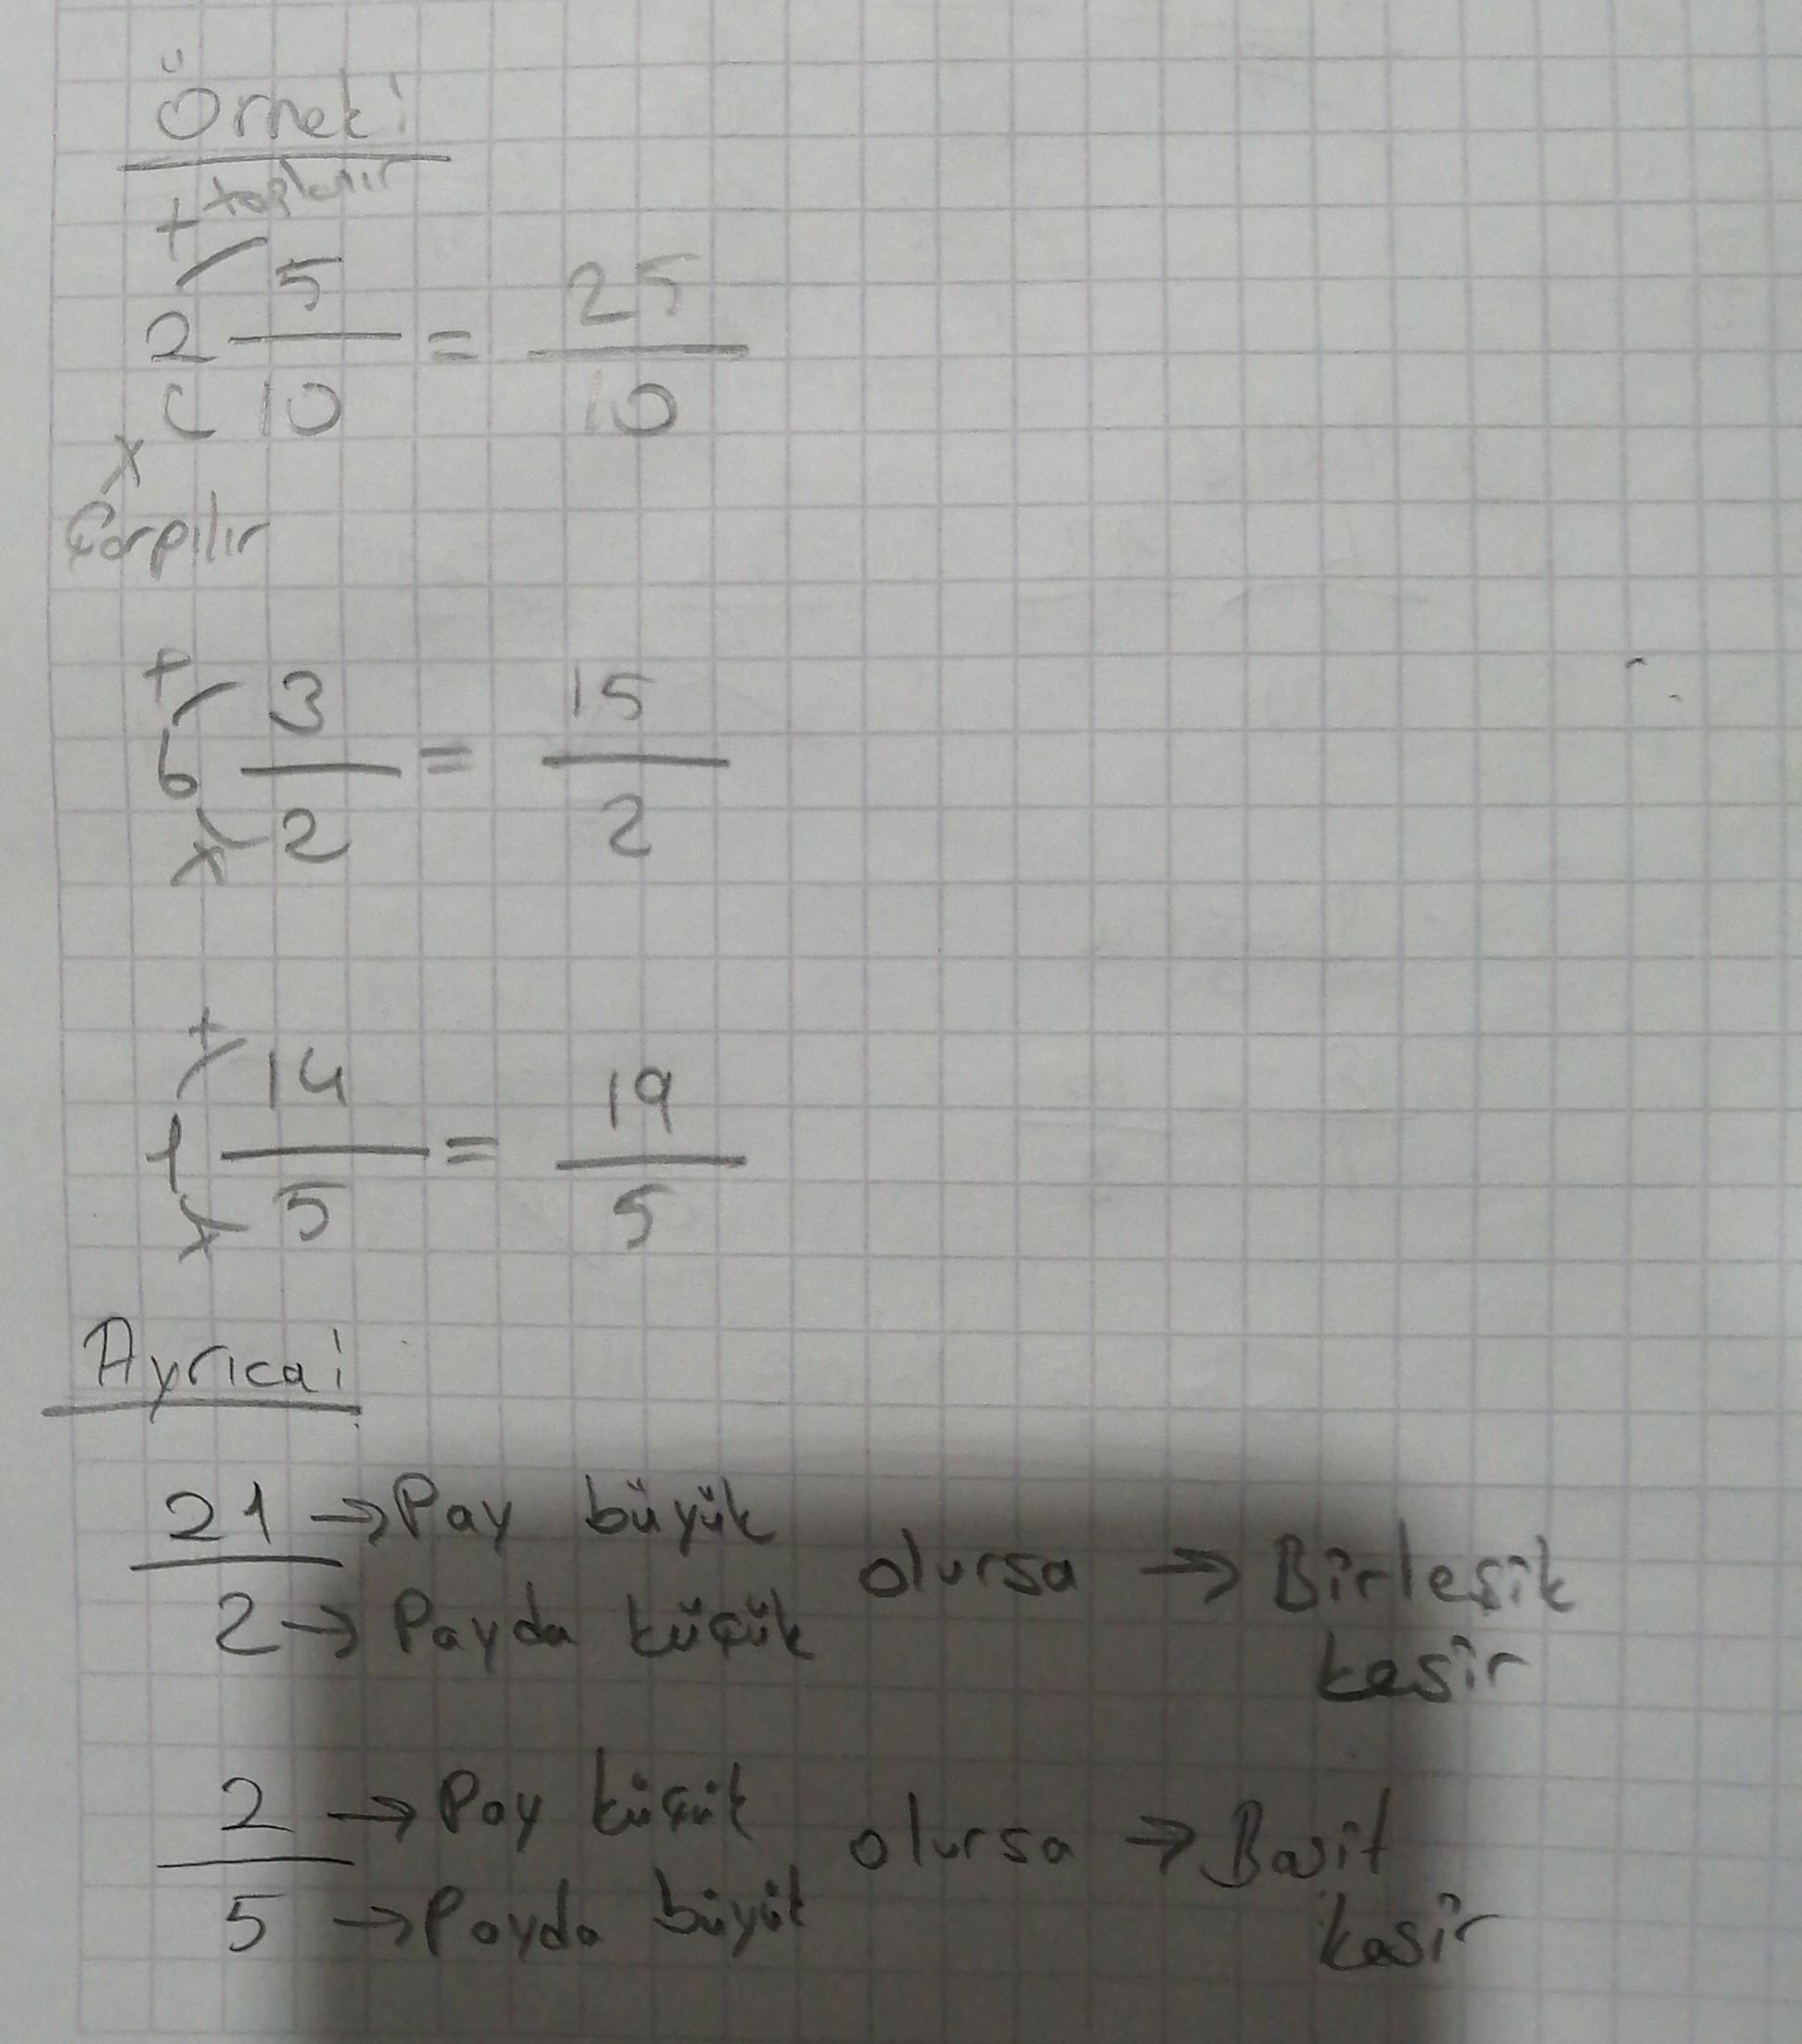 Örnek:
+ toplanır
2 5/10 = 25/10
x
Çarpılır
+
6 3/2 = 15/2
x
+
1 14/5 = 19/5
x
Ayrıca:
21 → Pay büyük
olursa → Birleşik
2 → Payda küçük
kesir
2 → Pay küçük
olursa → Basit
5 → Payda büyük
kesir